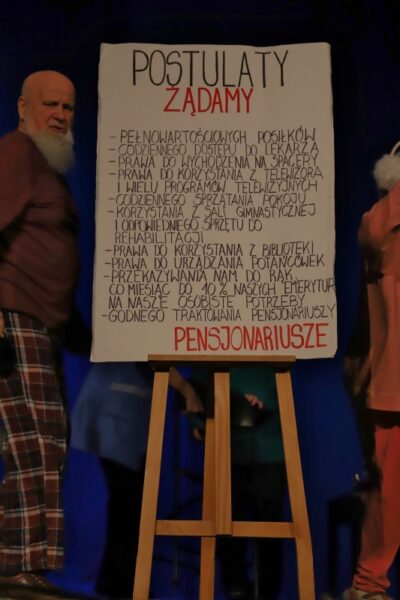 POSTULATY
ŻĄDAMY
- PEŁNOWARTOŚCIOWYCH POSIŁKÓW
- CODZIENNEGO DOSTĘPU DO LEKARZA
- PRAWA DO WYCHODZENIA NA SPACERY
- PRAWA DO KORZYSTANIA Z TELEWIZORA
I WIELU PROGRAMÓW TELEWIZYJNYCH
- CODZIENNEGO SPRZĄTANIA POKOJU
- KORZYSTANIA Z SALI GIMNASTYCZNEJ
I ODPOWIEDNIEGO SPRZĘTU DO
REHABILITACJI
- PRAWA DO KORZYSTANIA Z BIBLIOTEKI
- PRAWA DO URZĄDZANIA POTAŃCÓWEK
- PRZEKAZYWANIA NAM DO RĄK
CO MIESIĄC DO 10% NASZYCH EMERYTUR
NA NASZE OSOBISTE POTRZEBY
- GODNEGO TRAKTOWANIA PENSJONARIUSZY
PENSJONARIUSZE